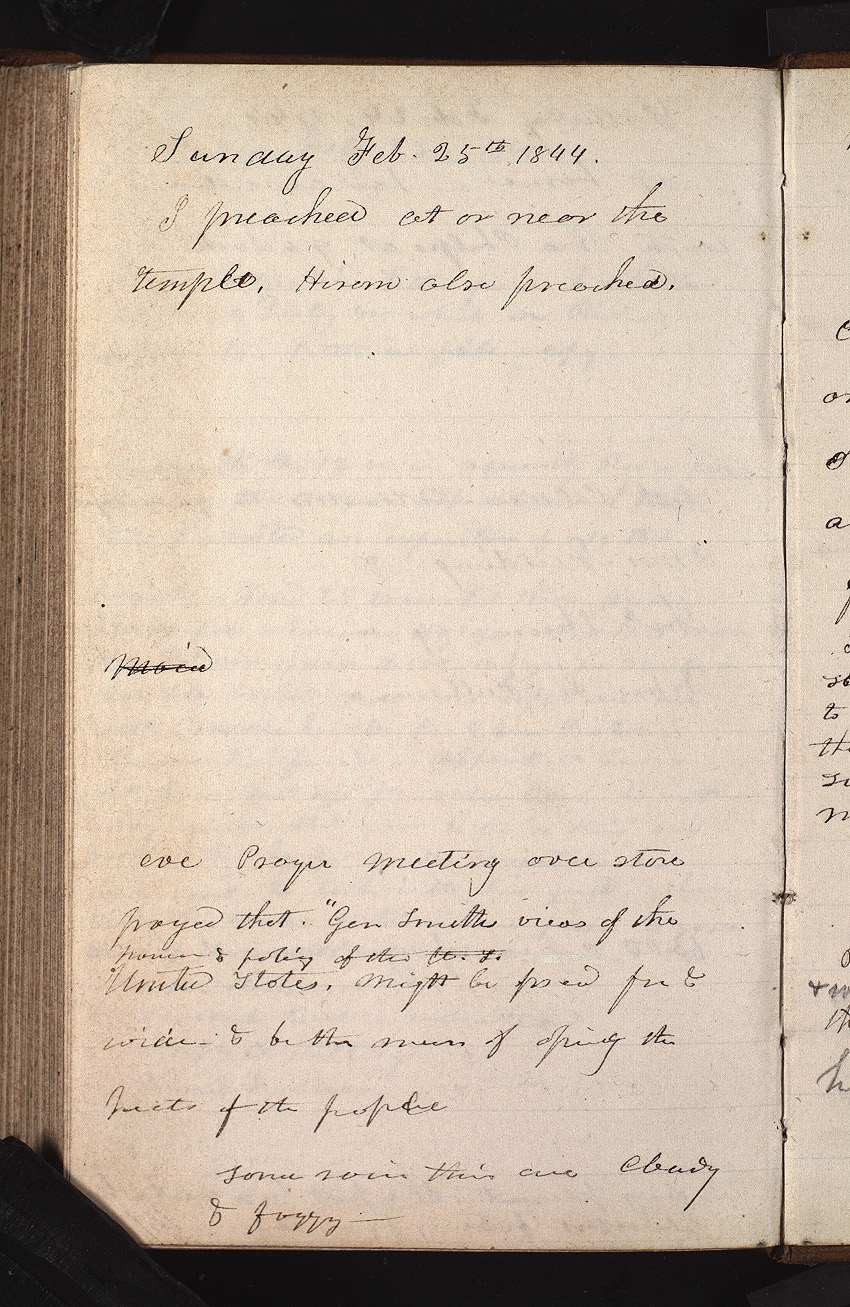 Sunday Feb. 25th 1844.
I preached at or near the
temple. Hirom also preached.
eve Prayer meeting over store
prayed that. "Gen Smiths views of the
power & policy of the U. S.
United States. might be spread far &
wide & be the means of oping the
hearts of the people
some rain this eve Cloudy
& foggy—